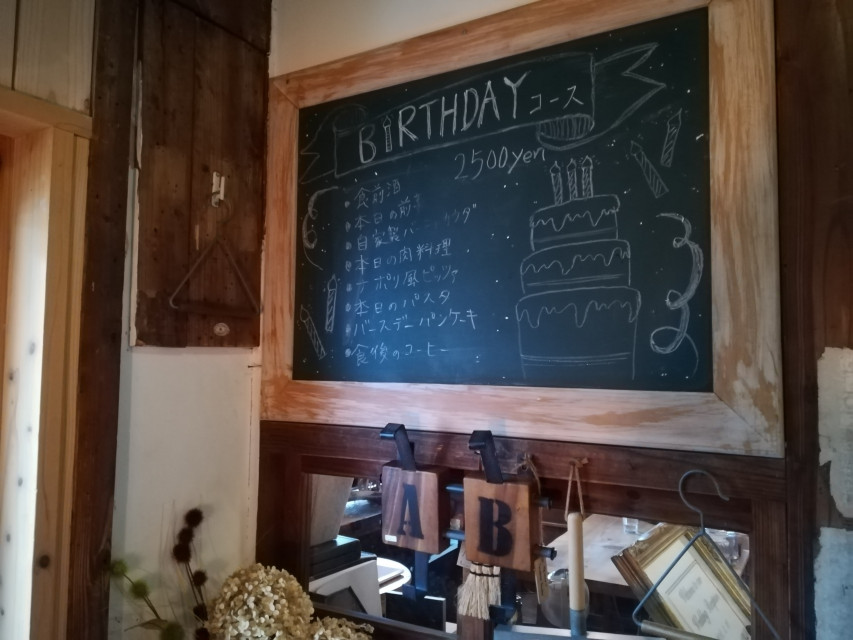 BIRTHDAYコース
2500yen
・食前酒
・本日の前
・自家製バーニャカウダ
・本日の肉料理
・ナポリ風ピッツァ
・本日のパスタ
・バースデーパンケーキ
・食後のコーヒー
A
B